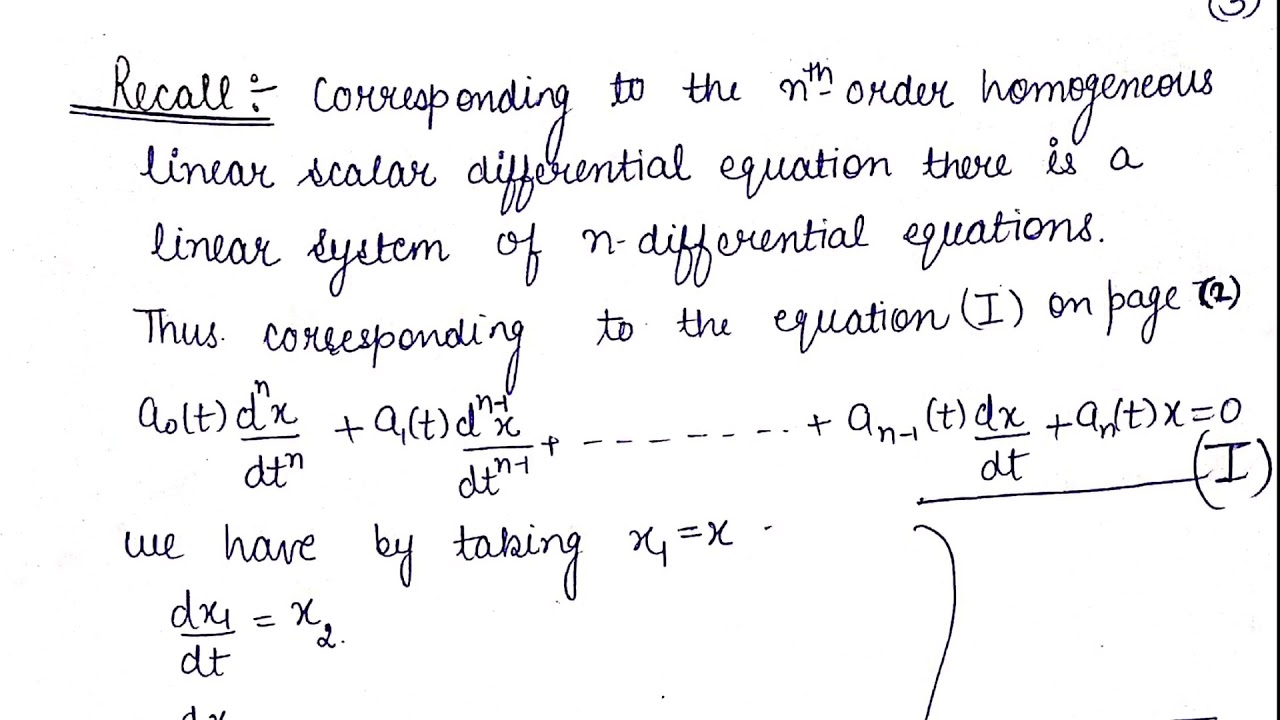 (3)
Recall :- Corresponding to the nth order homogeneous
linear scalar differential equation there is a
linear system of n-differential equations.
Thus corresponding to the equation (I) on page (2)
a₀(t) dⁿx/dtⁿ + a₁(t) dⁿ⁻¹x/dtⁿ⁻¹ + - - - - - - - .. + aₙ₋₁(t) dx/dt + aₙ(t) x = 0
(I)
we have by taking x₁ = x
dx₁/dt = x₂.
dx